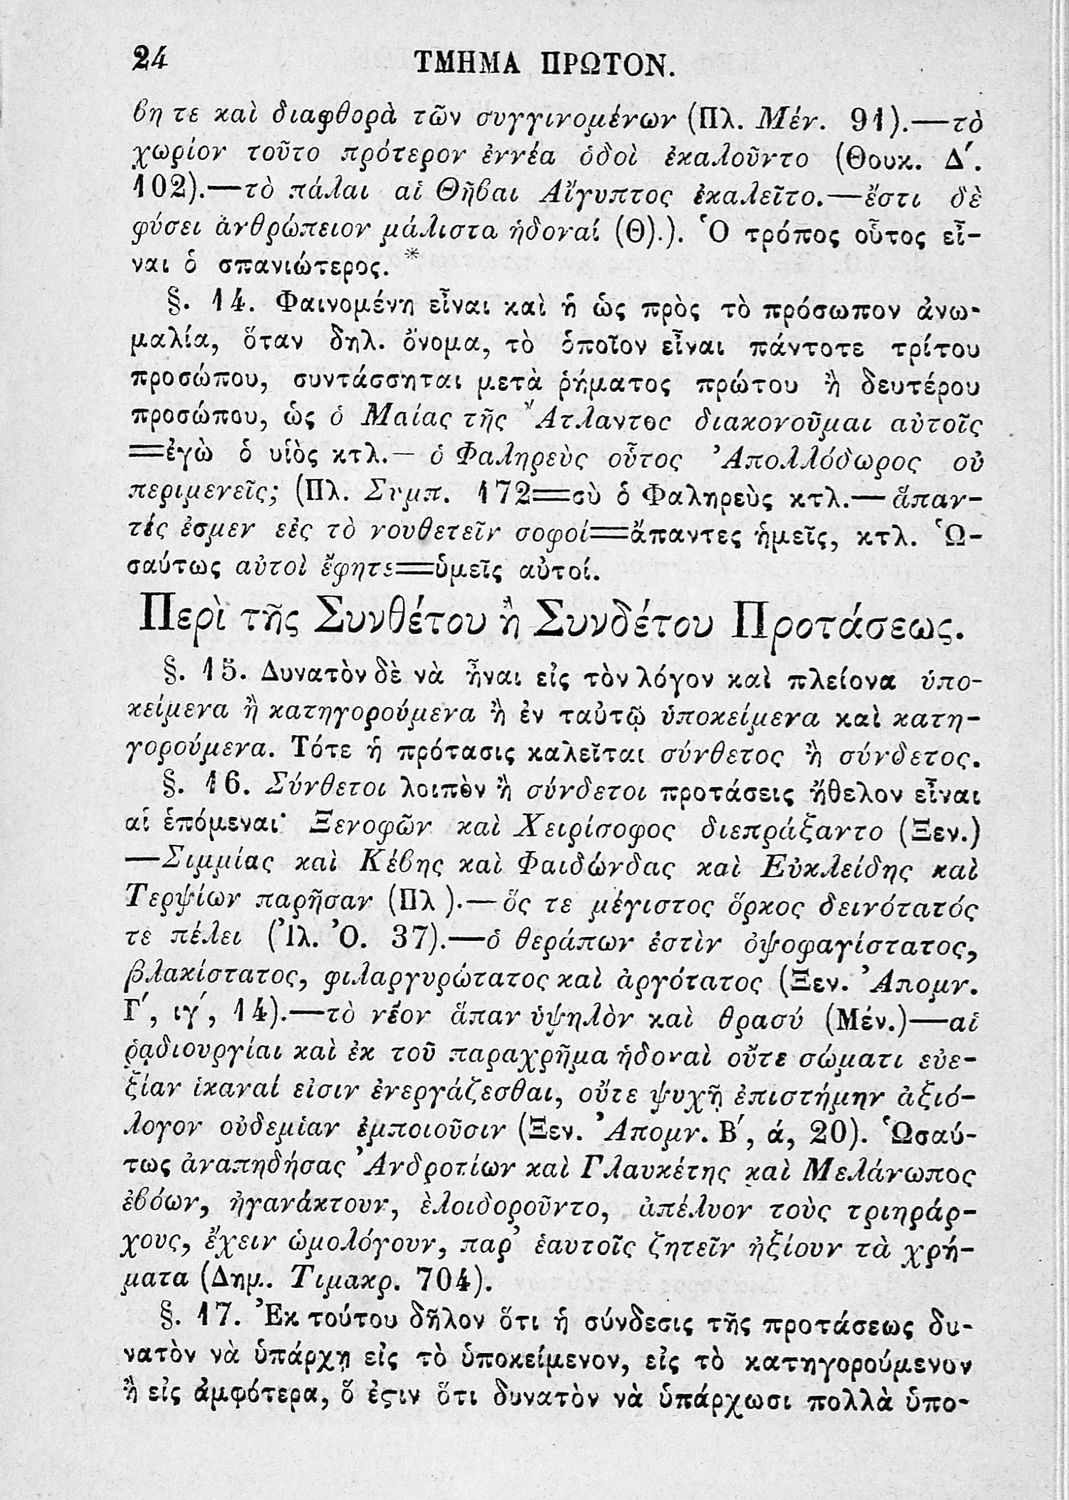 24 ΤΜΗΜΑ ΠΡΩΤΟΝ.
βη τε καὶ διαφθορὰ τῶν συγγινομένων (Πλ. Μέν. 91).—τὸ
χωρίον τοῦτο πρότερον ἐννέα ὁδοὶ ἐκαλοῦντο (Θουκ. Δ΄.
102).—τὸ πάλαι αἱ Θῆβαι Αἴγυπτος ἐκαλεῖτο.—ἔστι δὲ
φύσει ἀνθρώπειον μάλιστα ἡδοναί (Θ).). Ὁ τρόπος οὗτος εἶ-
ναι ὁ σπανιώτερος. *
§. 14. Φαινομένη εἶναι καὶ ἡ ὡς πρὸς τὸ πρόσωπον ἀνω-
μαλία, ὅταν δηλ. ὄνομα, τὸ ὁποῖον εἶναι πάντοτε τρίτου
προσώπου, συντάσσηται μετὰ ῥήματος πρώτου ἢ δευτέρου
προσώπου, ὡς ὁ Μαίας τῆς Ἄτλαντος διακονοῦμαι αὐτοῖς
=ἐγὼ ὁ υἱὸς κτλ.— ὁ Φαληρεὺς οὗτος Ἀπολλόδωρος οὐ
περιμενεῖς; (Πλ. Συμπ. 172=σὺ ὁ Φαληρεὺς κτλ.—ἅπαν-
τές ἐσμεν εἰς τὸ νουθετεῖν σοφοί=ἅπαντες ἡμεῖς, κτλ. Ὡ-
σαύτως αὐτοὶ ἔφητε=ὑμεῖς αὐτοί.
Περὶ τῆς Συνθέτου ἢ Συνδέτου Προτάσεως.
§. 15. Δυνατὸν δὲ νὰ ἦναι εἰς τὸν λόγον καὶ πλείονα ὑπο-
κείμενα ἢ κατηγορούμενα ἢ ἐν ταὐτῷ ὑποκείμενα καὶ κατη-
γορούμενα. Τότε ἡ πρότασις καλεῖται σύνθετος ἢ σύνδετος.
§. 16. Σύνθετοι λοιπὸν ἢ σύνδετοι προτάσεις ἤθελον εἶναι
αἱ ἑπόμεναι· Ξενοφῶν καὶ Χειρίσοφος διεπράξαντο (Ξεν.)
—Σιμμίας καὶ Κέβης καὶ Φαιδώνδας καὶ Εὐκλείδης καὶ
Τερψίων παρῆσαν (Πλ ).—ὅς τε μέγιστος ὅρκος δεινότατός
τε πέλει (Ἰλ. Ὀ. 37).—ὁ θεράπων ἐστὶν ὀψοφαγίστατος,
βλακίστατος, φιλαργυρώτατος καὶ ἀργότατος (Ξεν. Ἀπομν.
Γ΄, ιγ΄, 14).—τὸ νέον ἅπαν ὑψηλὸν καὶ θρασύ (Μέν.)—αἱ
ῥᾳδιουργίαι καὶ ἐκ τοῦ παραχρῆμα ἡδοναὶ οὔτε σώματι εὐε-
ξίαν ἱκαναί εἰσιν ἐνεργάζεσθαι, οὔτε ψυχῇ ἐπιστήμην ἀξιό-
λογον οὐδεμίαν ἐμποιοῦσιν (Ξεν. Ἀπομν. Β΄, ά, 20). Ὡσαύ-
τως ἀναπηδήσας Ἀνδροτίων καὶ Γλαυκέτης καὶ Μελάνωπος
ἐβόων, ἠγανάκτουν, ἐλοιδοροῦντο, ἀπέλυον τοὺς τριηράρ-
χους, ἔχειν ὡμολόγουν, παρ᾽ ἑαυτοῖς ζητεῖν ἠξίουν τὰ χρή-
ματα (Δημ. Τιμακρ. 704).
§. 17. Ἐκ τούτου δῆλον ὅτι ἡ σύνδεσις τῆς προτάσεως δυ-
νατὸν νὰ ὑπάρχῃ εἰς τὸ ὑποκείμενον, εἰς τὸ κατηγορούμενον
ἢ εἰς ἀμφότερα, ὅ ἐϛιν ὅτι δυνατὸν νὰ ὑπάρχωσι πολλὰ ὑπο-